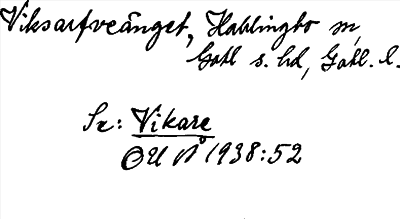 Viksarfveänget, Hablingbo sn,
Gotl s. hd, Gotl. l.
Se: Vikare
OU No 1938:52